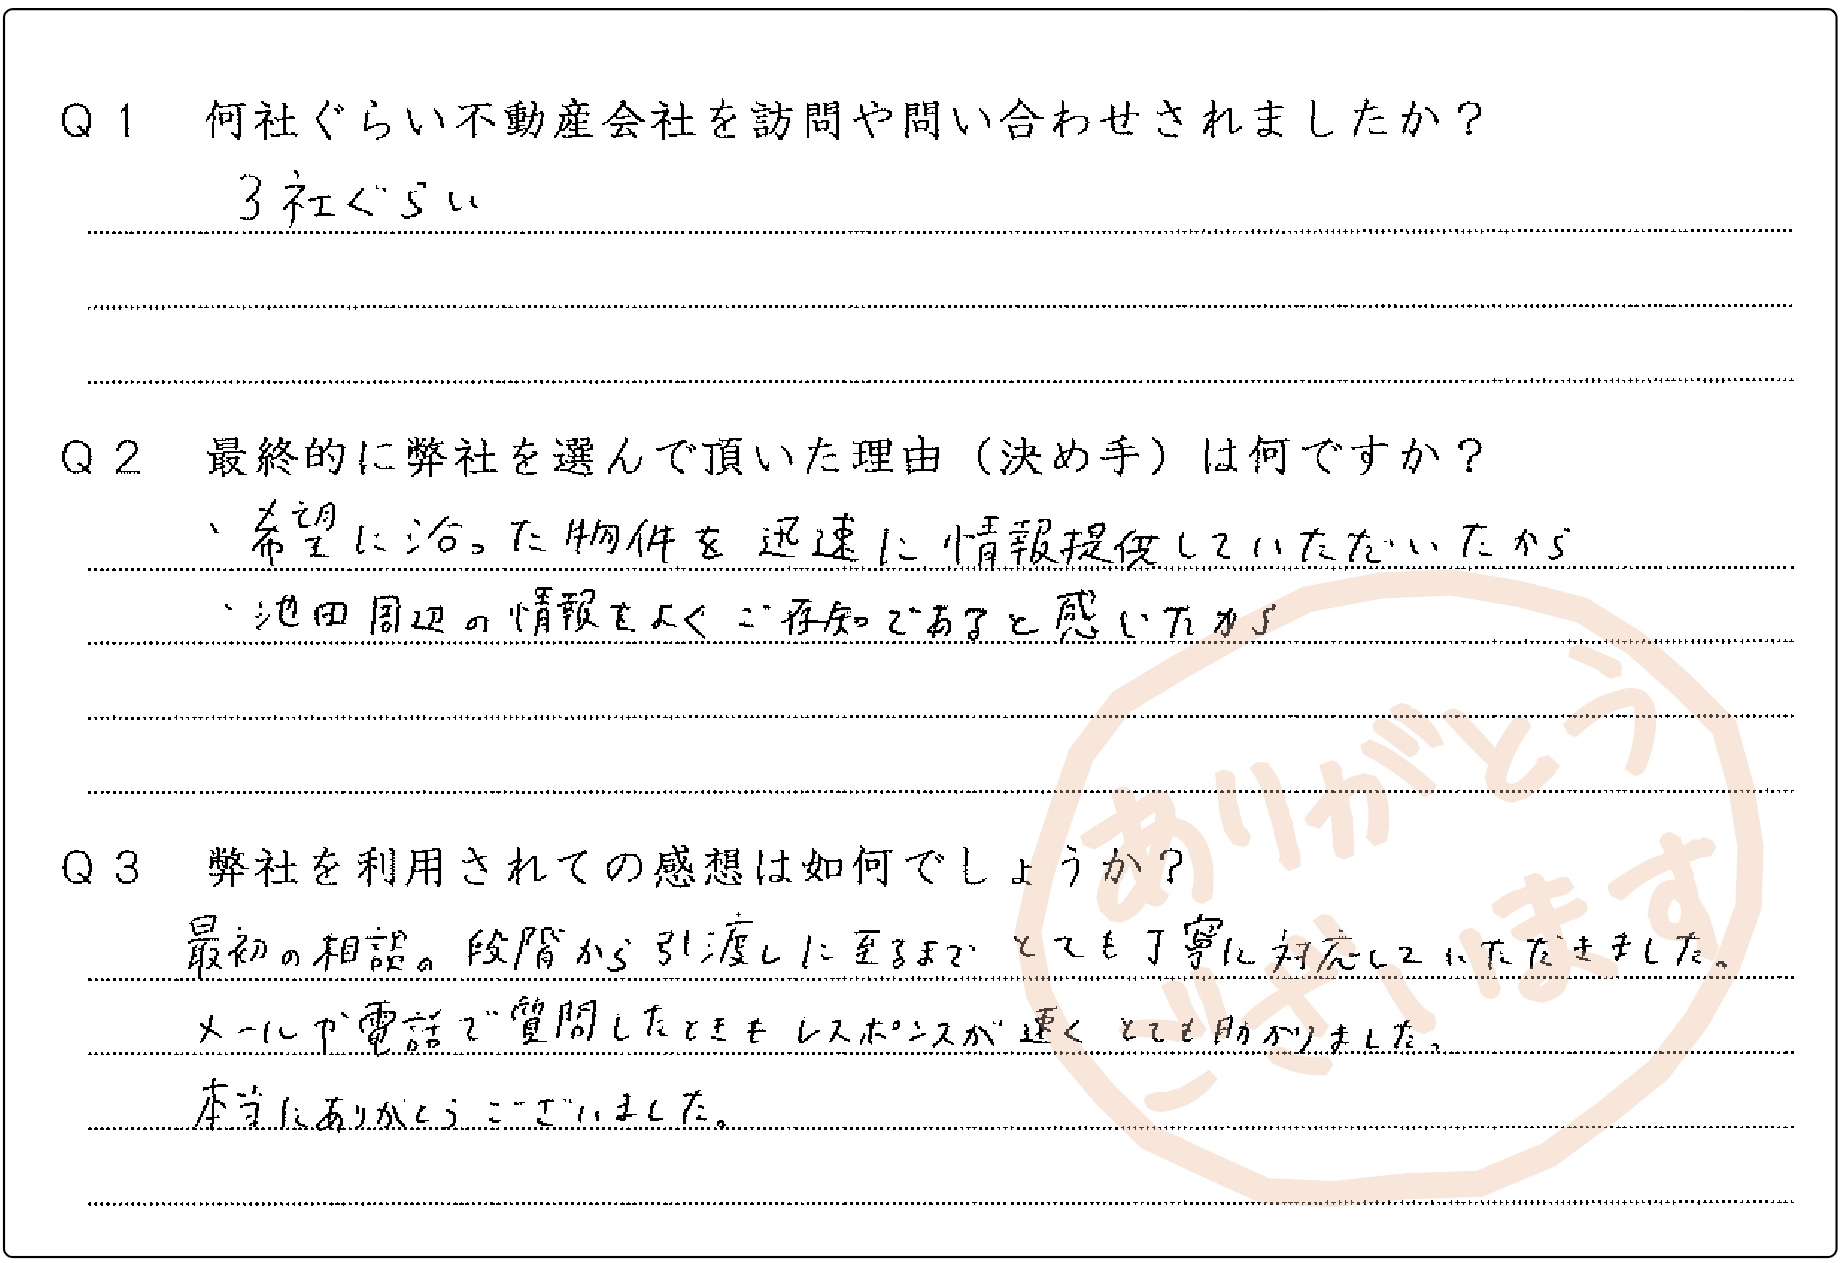 Q1 何社ぐらい不動産会社を訪問や問い合わせされましたか?
3社ぐらい
Q2 最終的に弊社を選んで頂いた理由(決め手)は何ですか?
・希望に沿った物件を迅速に情報提供していただいたから
・池田周辺の情報をよくご存知であると感じたから
Q3 弊社を利用されての感想は如何でしょうか?
最初の相談の段階から引渡しに至るまでとても丁寧に対応していただきました。
メールや電話で質問したときもレスポンスが速くとても助かりました。
本当にありがとうございました。
ありがとう
ございます